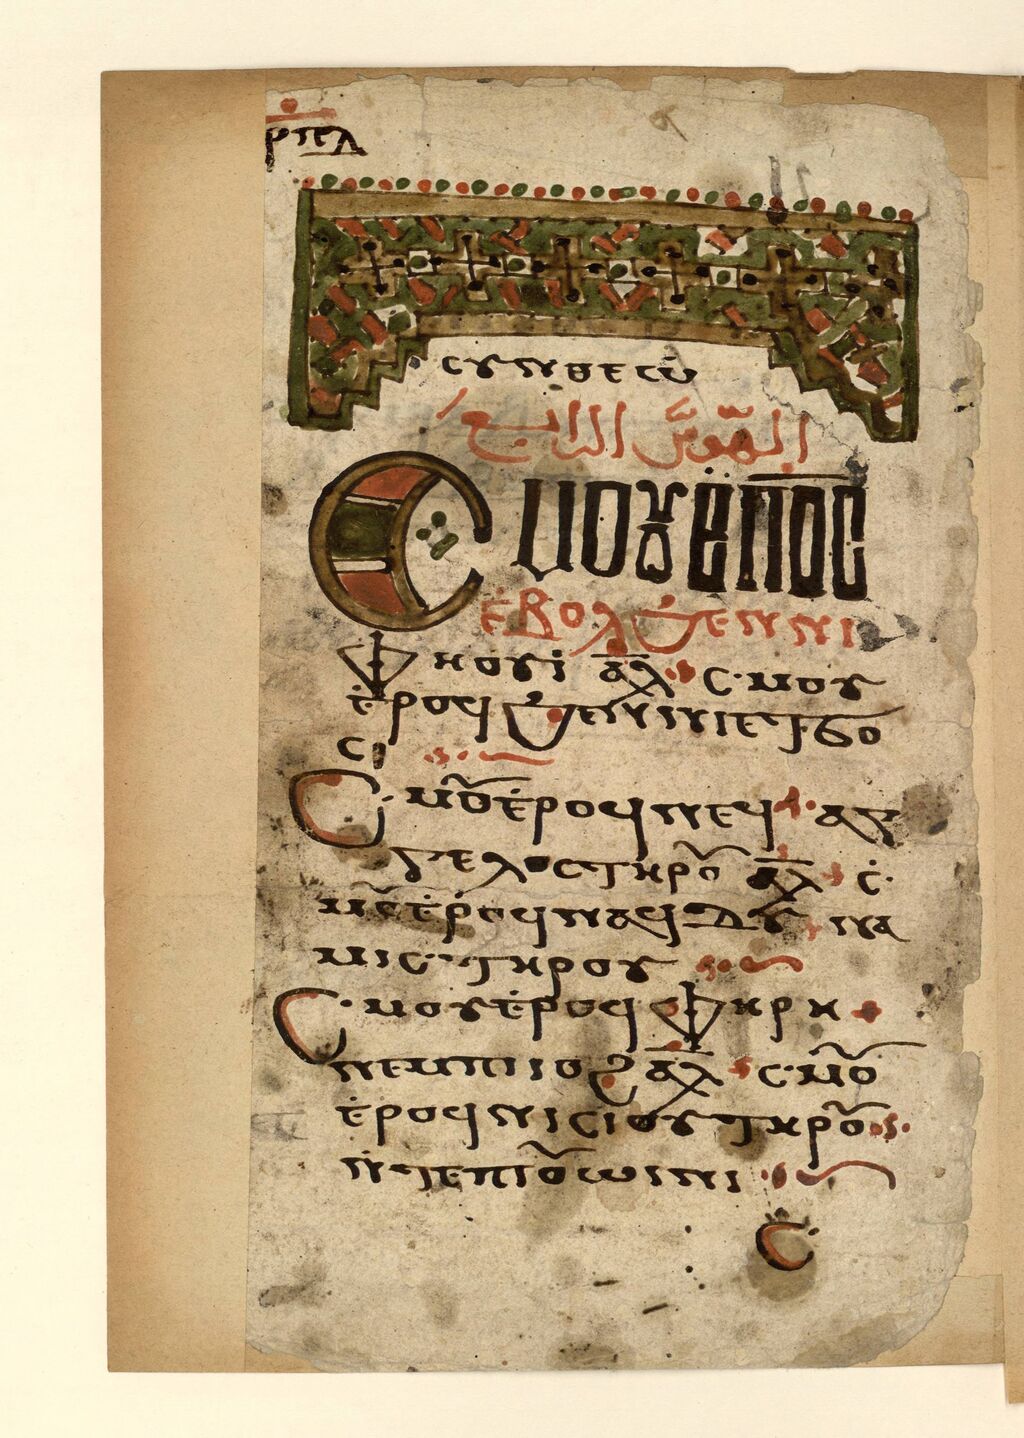 ⲣⲡⲉⲗ
ⲥⲩⲛⲑⲉⲥⲱ
الهوس الرابع
Ⲥⲙⲟⲩⲉⲡⲟ̅ⲥ̅
ⲉ̀ⲃⲟⲗϧⲉⲛⲛⲓ
ⲫⲏⲟⲩⲓ̀ ⲁ̅ⲗ̅ ⲥⲙⲟⲩ
ⲉ̀ⲣⲟϥϧⲉⲛⲛⲏⲉⲧϭⲟ
ⲥⲓ
Ⲥⲙⲟⲩⲉ̀ⲣⲟϥⲛⲉϥⲁⲅ
ⲅⲉⲗⲟⲥⲧⲏⲣⲟⲩ ⲁ̅ⲗ̅ ⲥ̀
ⲙⲟⲩⲉ̀ⲣⲟϥⲛⲉϥⲇⲩⲛⲁ
ⲙⲓⲥⲧⲏⲣⲟⲩ
Ⲥⲙⲟⲩⲉ̀ⲣⲟϥⲫⲣⲏ
ⲛⲉⲙⲡⲓⲓⲟϩ ⲁ̅ⲗ̅ ⲥⲙⲟⲩ
ⲉ̀ⲣⲟϥⲛⲓⲥⲓⲟⲩⲧⲏⲣⲟⲩ
ⲛ̀ⲧⲉⲡⲓⲟⲩⲱⲓⲛⲓ
Ⲥ